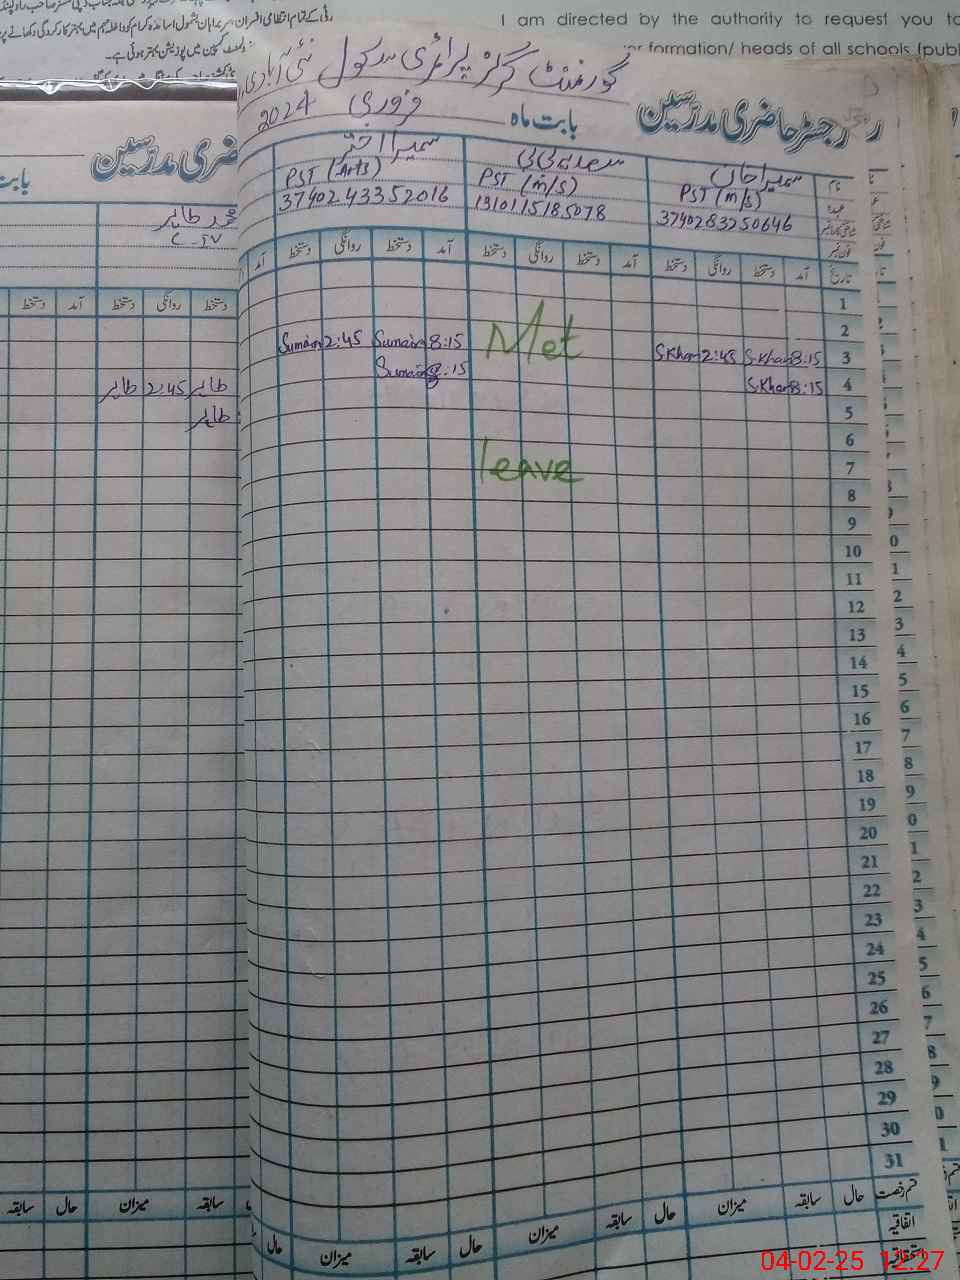 I am directed by the authority to request you to
formation/ heads of all schools (publ
گورنمنٹ گرلز پرائمری سکول نئی آبادی
رجسٹر حاضری مدرسین بابت ماہ فروری 2024
نام سمیرا خان سعدیہ بی بی سمیرا اختر
عہدہ PST (m/s) PST (m/s) PST (Arts)
3740283250646 1310115185078 3740243352016
فون نمبر
تاریخ آمد دستخط روانگی دستخط آمد دستخط روانگی دستخط آمد دستخط روانگی دستخط آمد
1
2
3 8:15 S.Khan 2:45 S.Khan Met 8:15 Sumaira 2:45 Sumaira
4 8:15 S.Khan 8:15 Sumaira
5
6
7 leave
8
9
10
11
12
13
14
15
16
17
18
19
20
21
22
23
24
25
26
27
28
29
30
31
قسم رخصت حال سابقہ میزان حال سابقہ میزان حال سابقہ میزان حال
اتفاقیہ
استحقاقیہ
ضری مدرسین
محمد طاہر
C-IV
دستخط روانگی دستخط آمد دستخط
طاہر 2:45 طاہر
طاہر
سابقہ میزان حال سابقہ
04-02-25 12:27